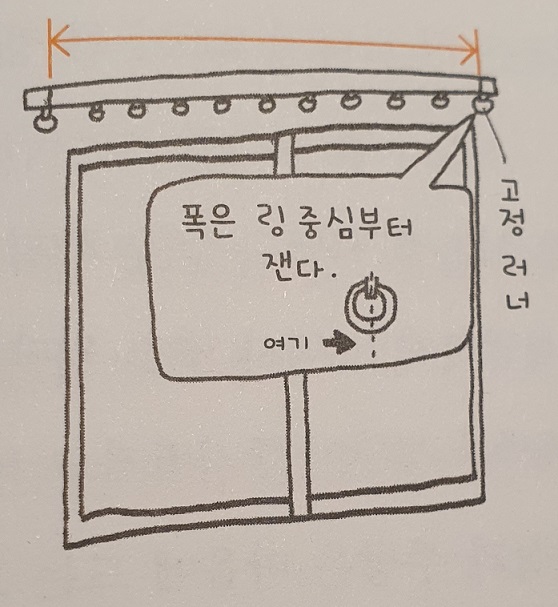 폭은 링 중심부터
잰다.
여기
고정 러너